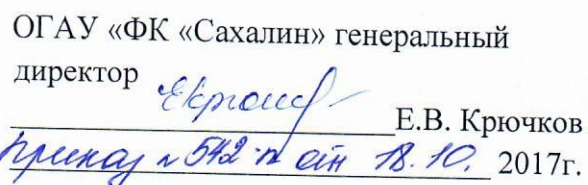 ОГАУ «ФК «Сахалин» генеральный
директор
Е.В. Крючков
Приказ № 542-п от 18.10. 2017г.